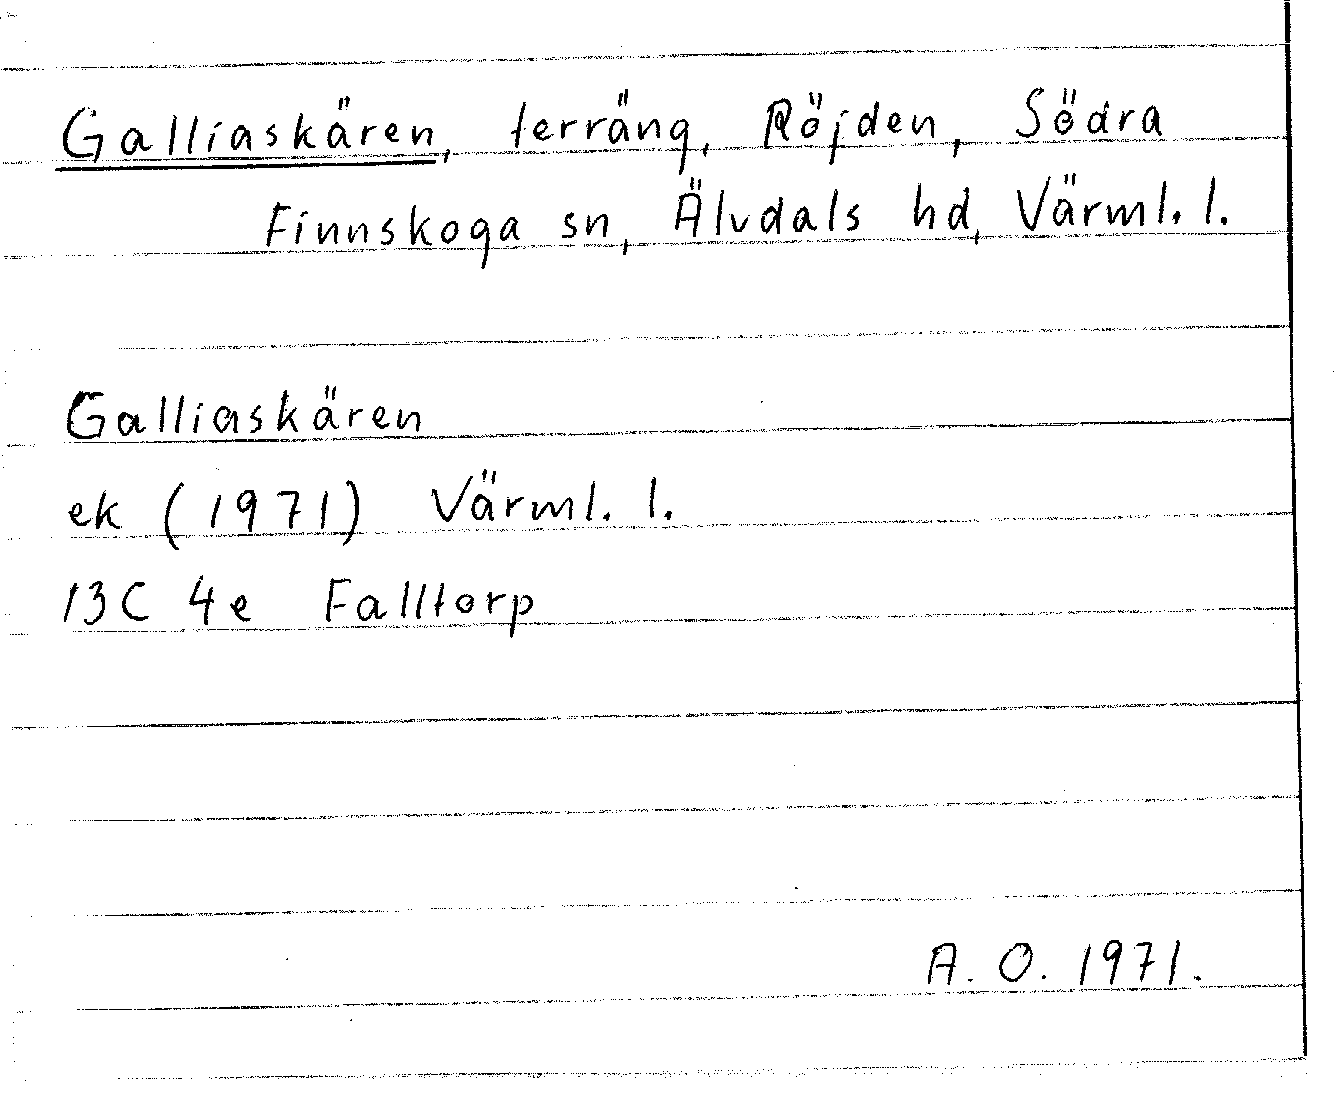 Galliaskären, terräng, Röjden, Södra
Finnskoga sn, Älvdals hd, Värml. l.
Galliaskären
ek (1971) Värml. l.
13C 4e Falltorp
A. O. 1971.